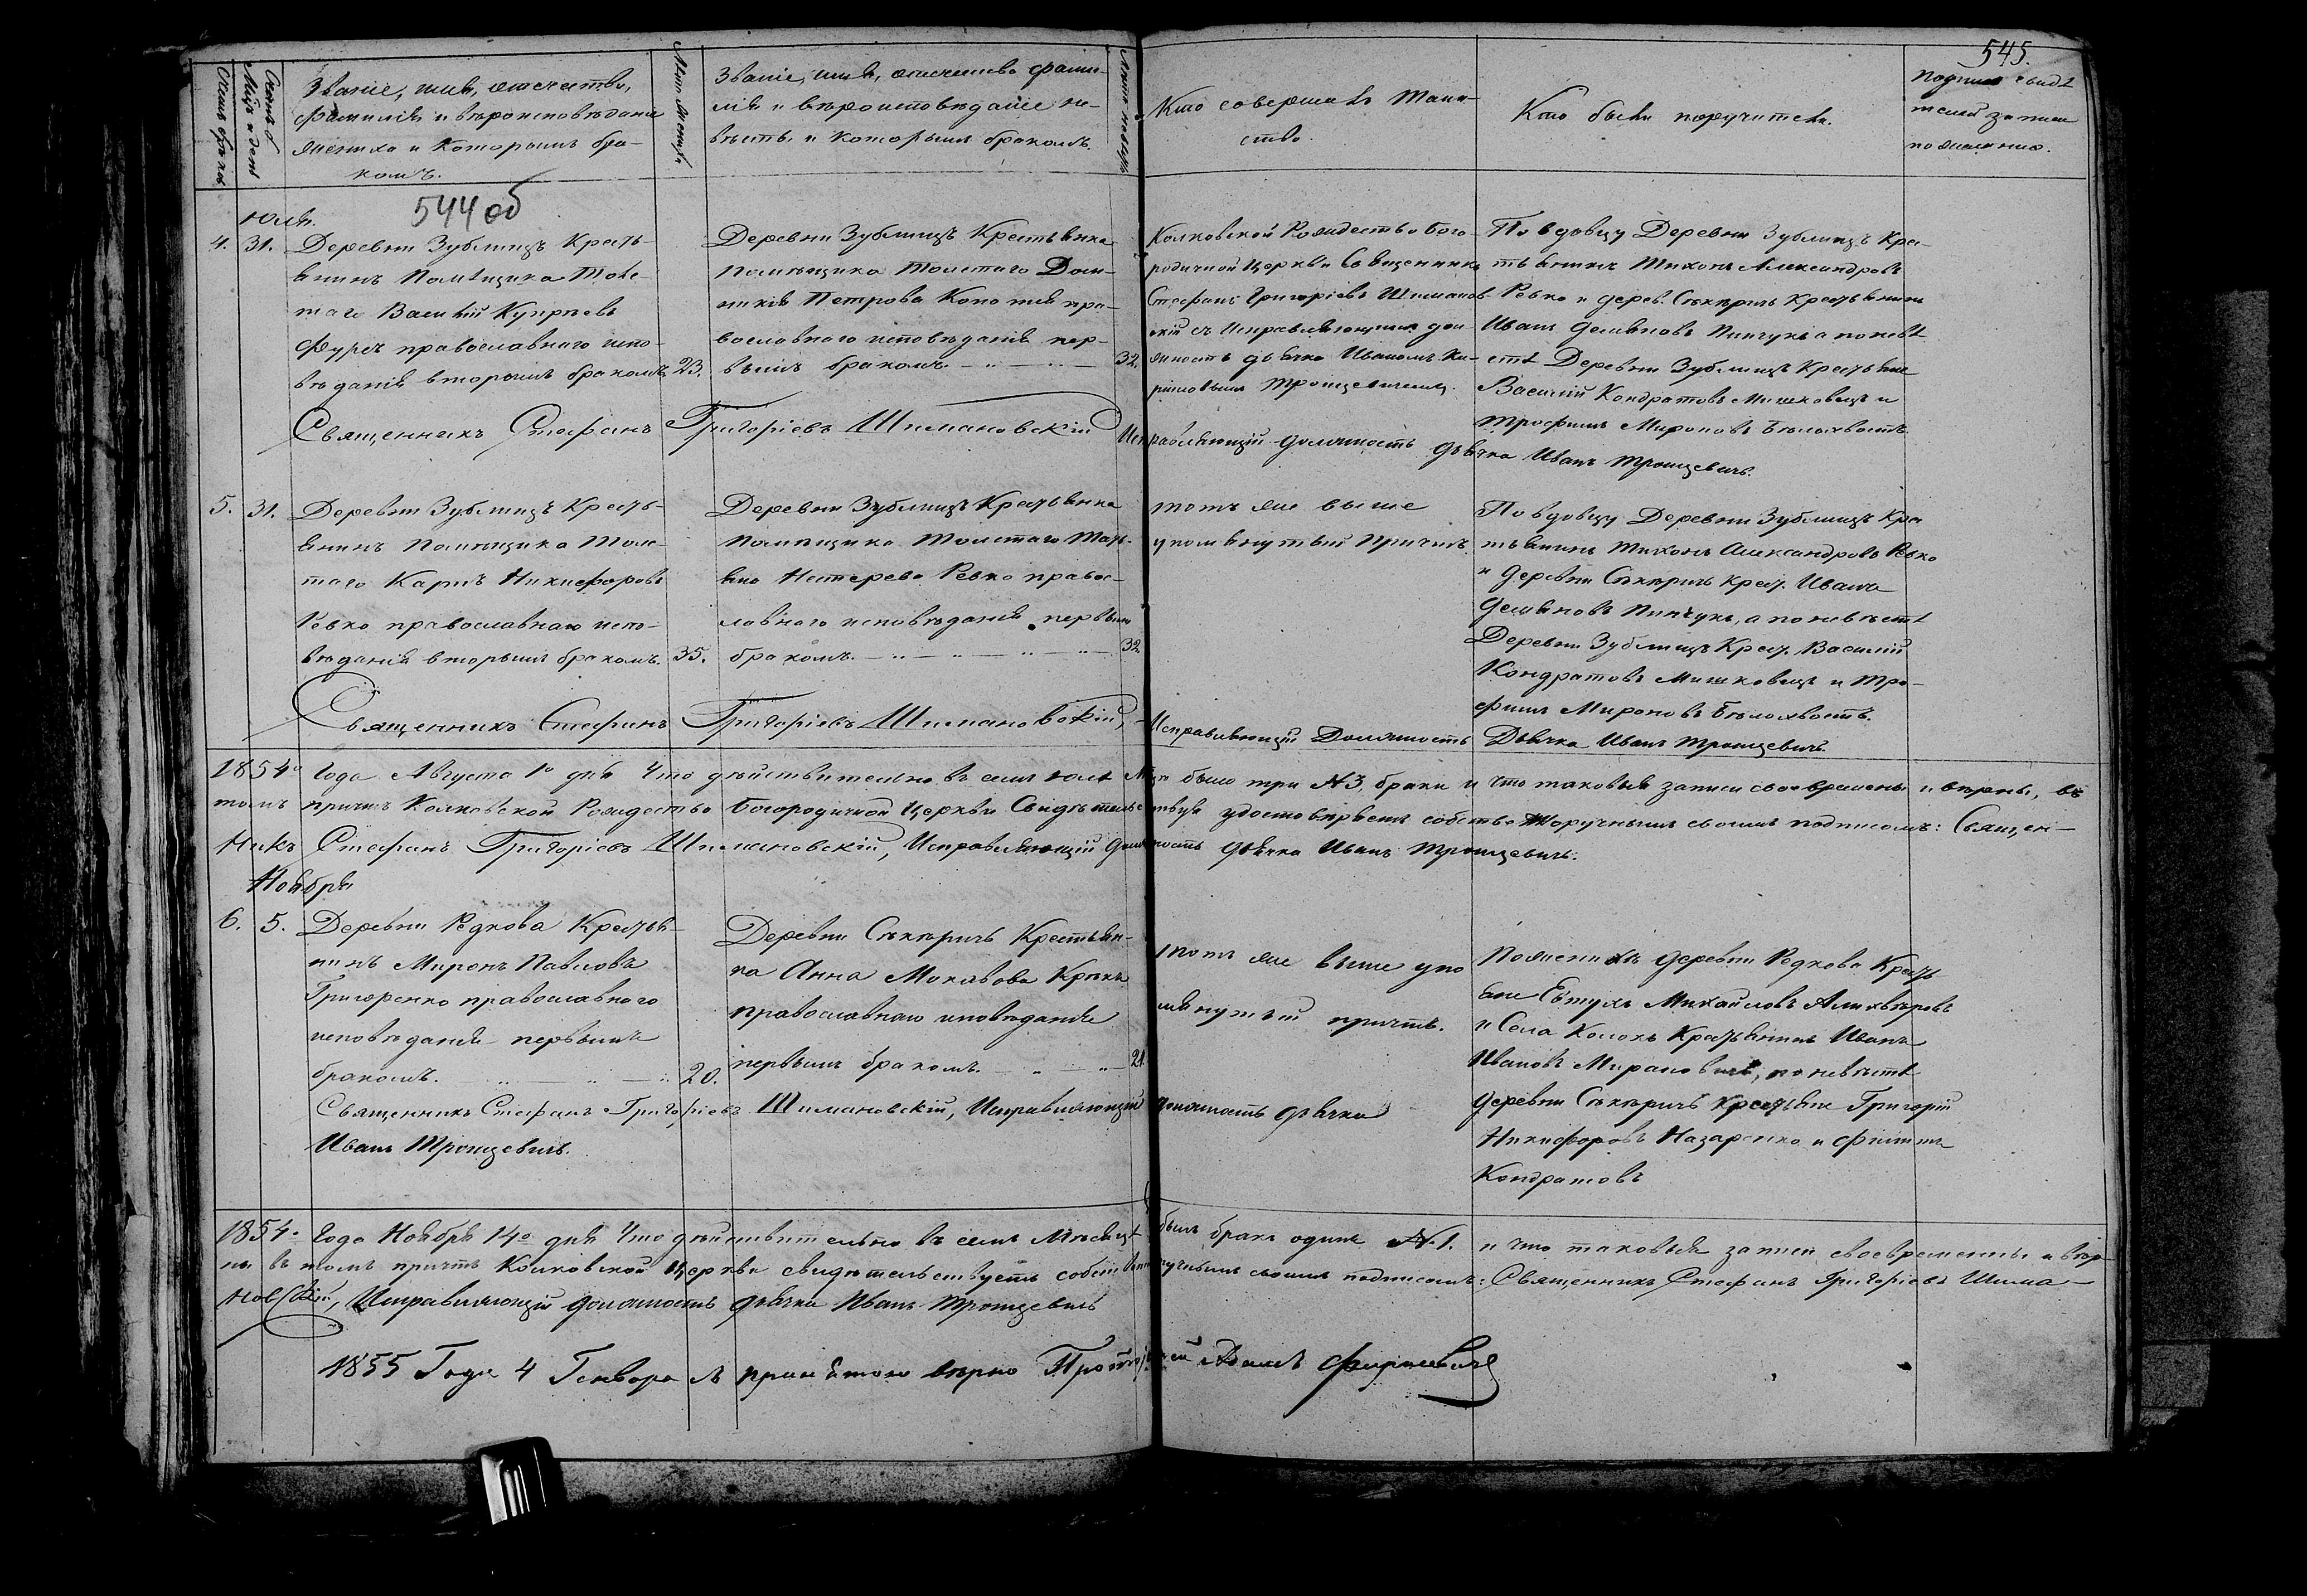 545.
Счетъ браковъ
Мѣсяцъ и день
Званіе, имя, отечество,
фамилія и вѣроисповѣданіе
жениха и которымъ бра-
комъ.
Лѣта жениха
Званіе, имя, отечество фами-
лія и вѣроисповѣданіе не-
вѣсты и которымъ бракомъ.
Лѣта невѣсты
Кто совершалъ Таин-
ство.
Кто были поручители.
Подпись свидѣ
телей записи
по желанію.
544 об
Юля.
4. 31.
Деревни Зублищъ Кресть-
янинъ Помѣщика Толс-
таго Василій Купрѣевъ
Фурсъ православнаго испо-
вѣданія вторымъ бракомъ. 23.
Деревни Зублищъ Крестьянка
Помѣщика Толстаго Дом-
никія Петрова Капо тія пра-
вославнаго исповѣданія пер-
вымъ бракомъ. 32.
Колковской Рождество Бого-
родичной Церкви Священникъ
Стефанъ Григоріевъ Шиманов-
скій съ Исправляющимъ дол
жность дьячка Иваномъ
Троицевичемъ.
По вдовцу Деревни Зублищъ Кре-
стьянинъ Тихонъ Александровъ
Ревко и дерев. Секеричъ Крестьянинъ
Иванъ Демьяновъ Пинчукъ а по невѣ
стѣ Деревни Зублищъ Крестьяне
Василій Кондратовъ Мишковецъ и
Трофимъ Мироновъ Бѣлохвостъ.
Священникъ Стефанъ Григоріевъ Шимановскій Исправляющій должность дьячка Иванъ Троицевичъ.
5. 31.
Деревни Зублищъ Кресть-
янинъ Помѣщика Толс-
таго Карпъ Никифоровъ
Ревко православнаго испо-
вѣданія вторымъ бракомъ. 35.
Деревни Зублищъ Крестьянка
Помѣщика Толстаго Тать-
яна Нестерова Ревко правос-
лавнаго исповѣданія первымъ
бракомъ. 32
тотъ же выше
упомянутый Причтъ
По вдовцу Деревни Зублищъ Кре
стьянинъ Тихонъ Александровъ Ревко
и Деревни Секеричъ Крест. Иванъ
Демьяновъ Пинчукъ, а по невѣстѣ
Деревни Зублищъ Крест. Василій
Кондратовъ Мишковецъ и Тро-
фимъ Мироновъ Бѣлохвостъ.
Священникъ Стефанъ Григоріевъ Шимановскій, Исправляющій Должность Дьячка Иванъ Троицевичъ
1854го Года Августа 1го дня Что дѣйствительно въ семъ Юлѣ Мцѣ было три №3 брака и что таковыя записи своевременны и вѣрны, въ
томъ причтъ Колковской Рождество Богородичной Церкви Свидѣтельствуя удостовѣряетъ собственноручнымъ своимъ подписомъ: Священ-
никъ Стефанъ Григоріевъ Шимановскій, Исправляющій Должность Дьячка Иванъ Троицевичъ.
Ноября
6. 5.
Деревни Редкова Крестья-
нинъ Миронъ Павловъ
Григоренко православнаго
исповѣданія первымъ
бракомъ. 20.
Деревни Секеричъ Крестьян-
ка Анна Мокавова
православнаго исповѣданія
первымъ бракомъ. 21.
тотъ же выше упо
мянутый причтъ.
По женихѣ деревни Редкова Кресть
яне Евтухъ Михайловъ
и Села Колокъ Крестьянинъ Иванъ
Ивановъ Мирановичъ, по невѣстѣ
деревни Секеричъ Крестьяне Григорій
Никифоровъ Назаренко и Филиппъ
Кондратовъ
Священникъ Стефанъ Григоріевъ Шимановскій, Исправляющій должность дьячка
Иванъ Троицевичъ.
1854го Года Ноября 14го дня Что дѣйствительно въ семъ Мѣсяцѣ былъ бракъ одинъ №1. и что таковыя записи своевременны и вѣр
ны въ томъ причтъ Колковской Церкви свидѣтельствуетъ собственноручнымъ своимъ подписомъ: Священникъ Стефанъ Григоріевъ Шима-
новскій, Исправляющій Должность дьячка Иванъ Троицевичъ
1855 Года 4 Генваря принято вѣрно